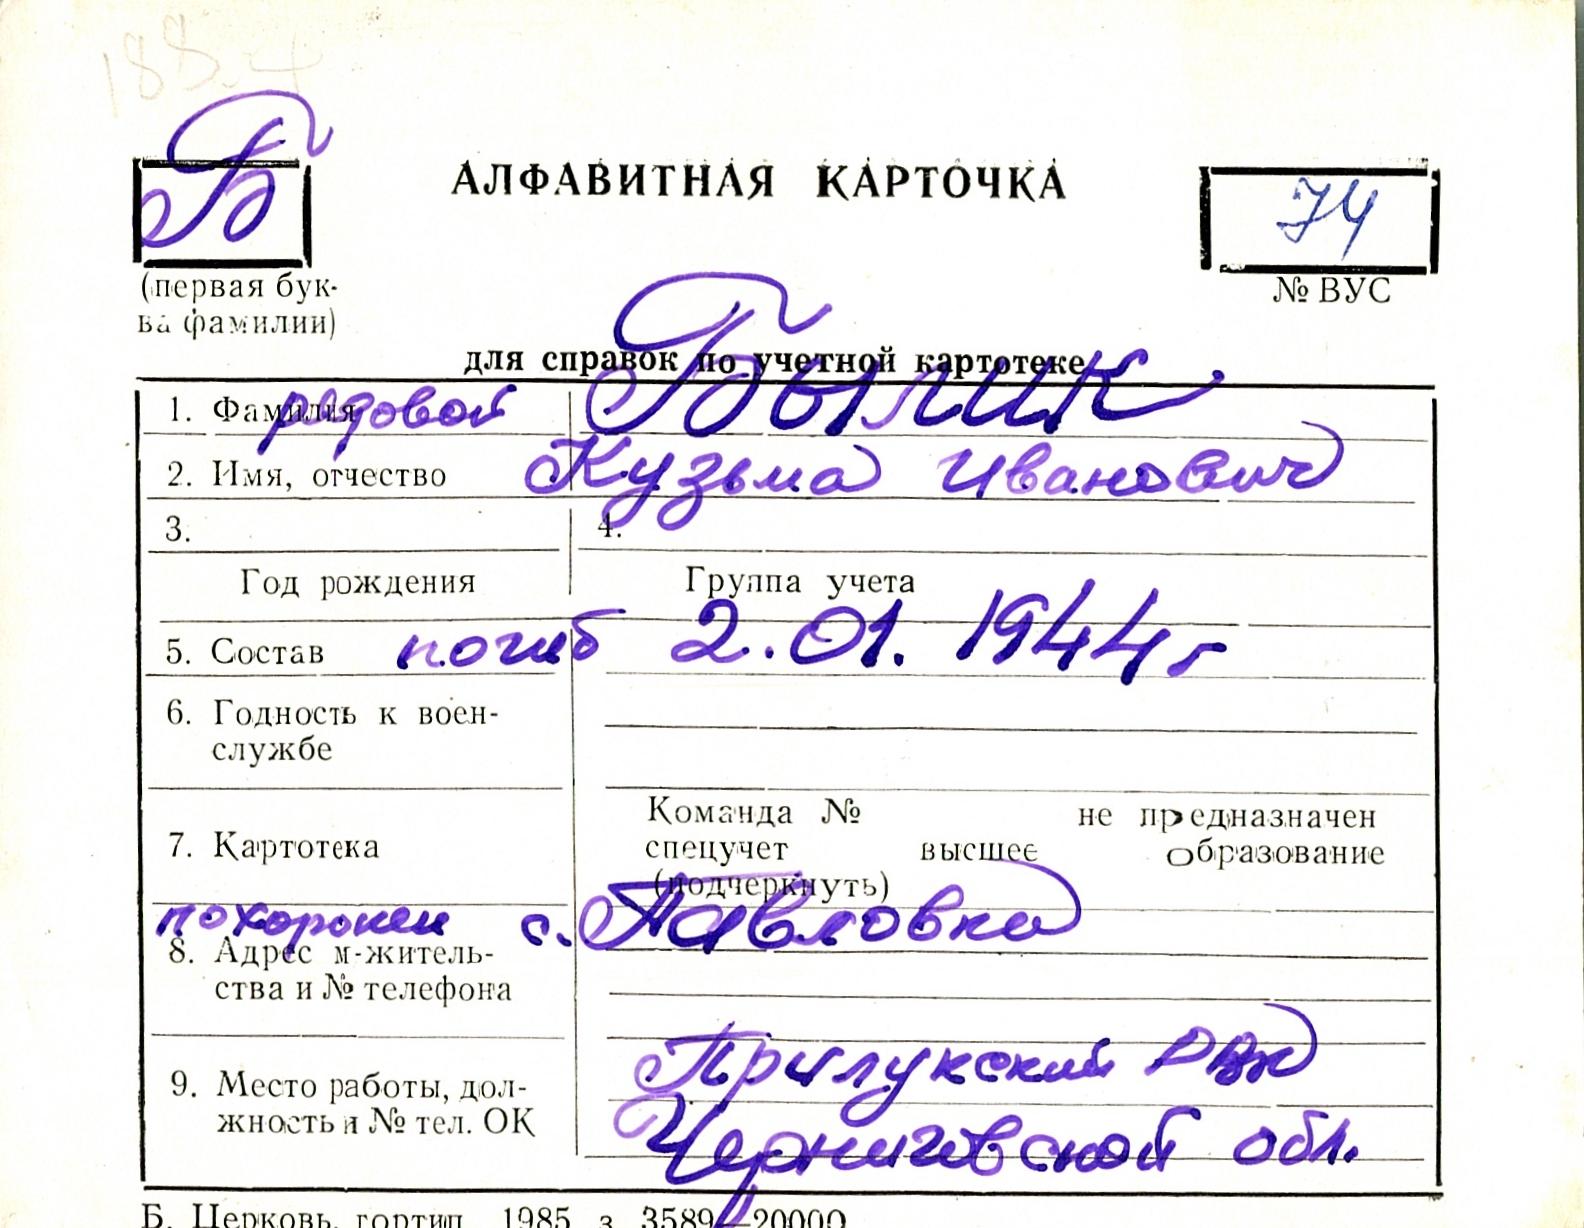 188-4
Б
АЛФАВИТНАЯ КАРТОЧКА
74
(первая бук-
ва фамилии)
№ ВУС
для справок по учетной картотеке
1. Фамилия рядовой Былик
2. Имя, отчество Кузьма Иванович
3. 4.
Год рождения Группа учета
5. Состав погиб 2.01.1944г
6. Годность к воен-
службе
7. Картотека
Команда № не предназначен
спецучет высшее образование
(подчеркнуть)
похоронен с. Павловка
8. Адрес м-житель-
ства и № телефона
Прилукский РВК
9. Место работы, дол-
жность и № тел. ОК
Черниговской обл.
Б. Церковь, гортип. 1985 з. 3589—20000